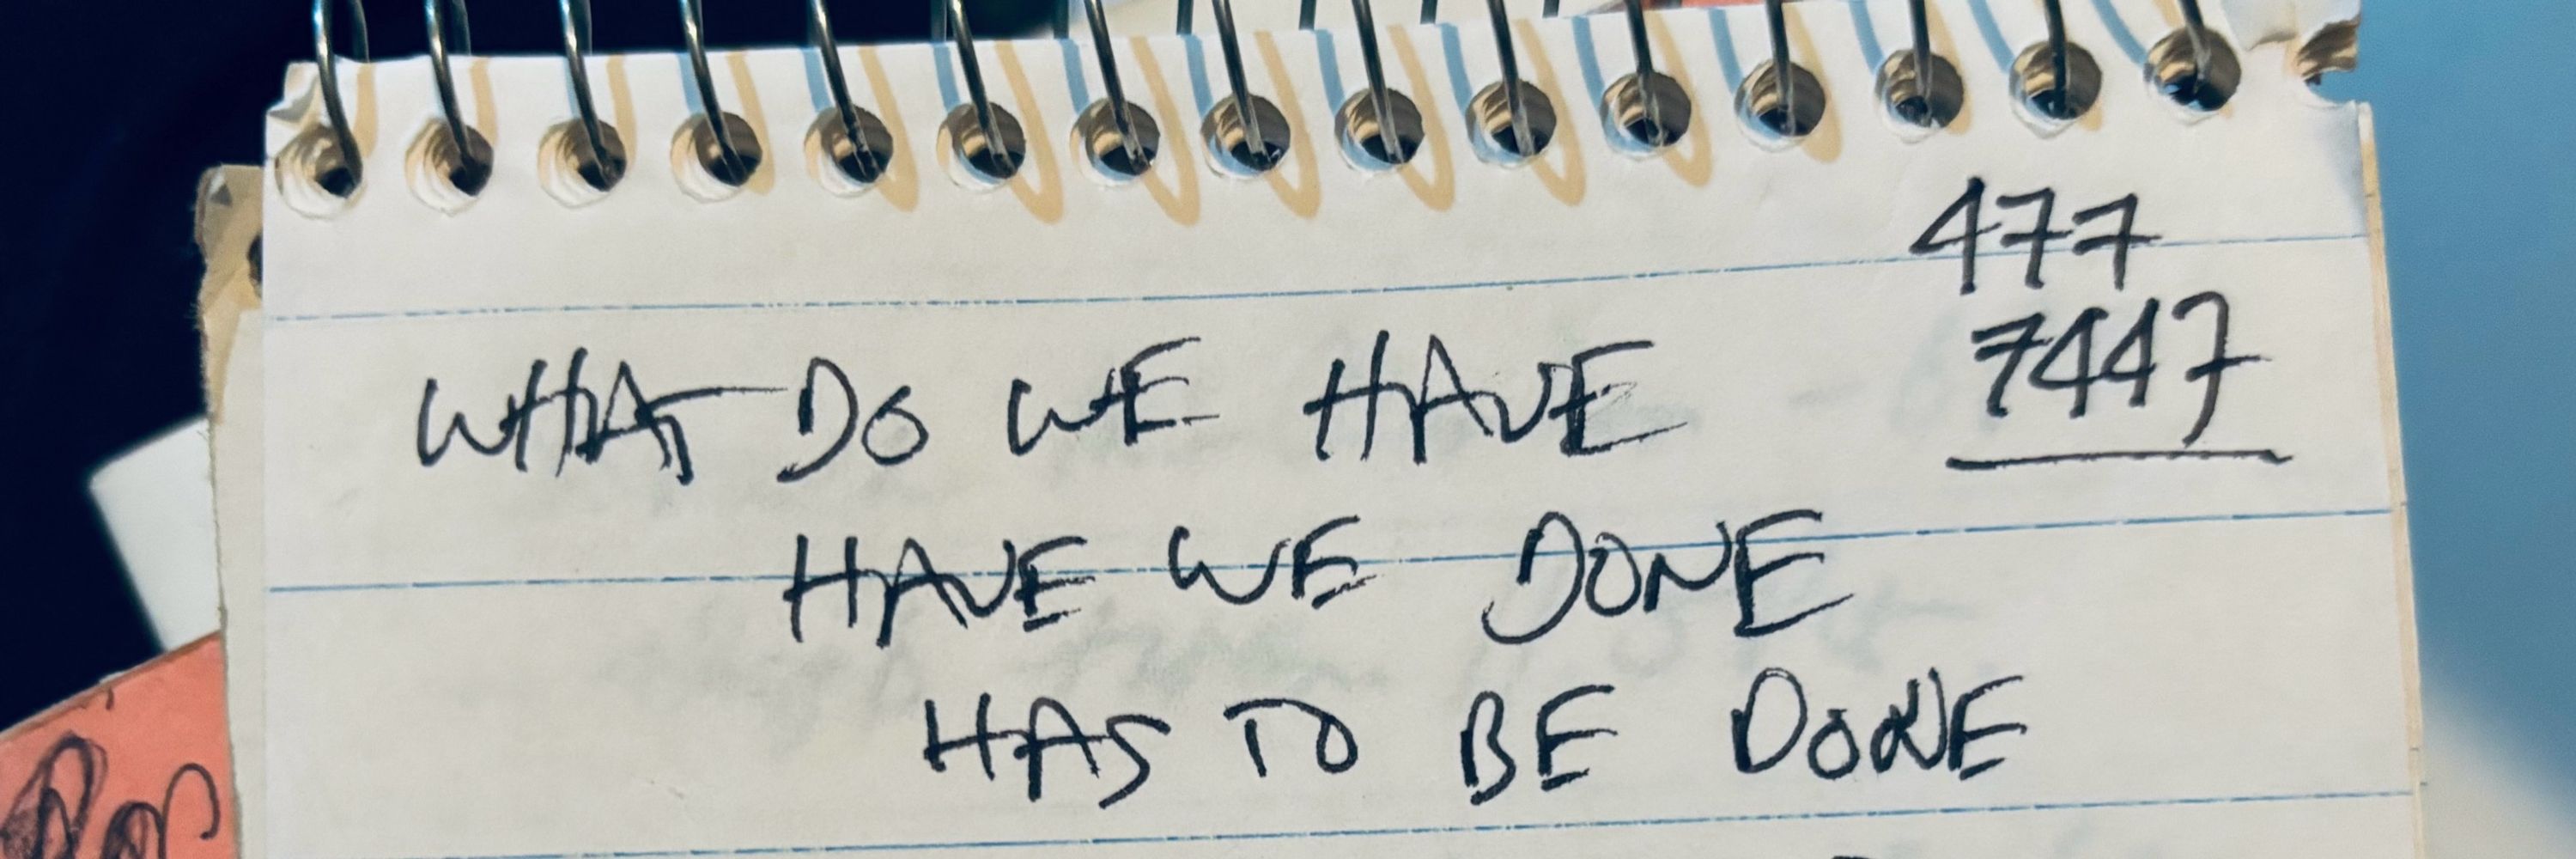 477
7447
WHAT DO WE HAVE
HAVE WE DONE
HAS TO BE DONE